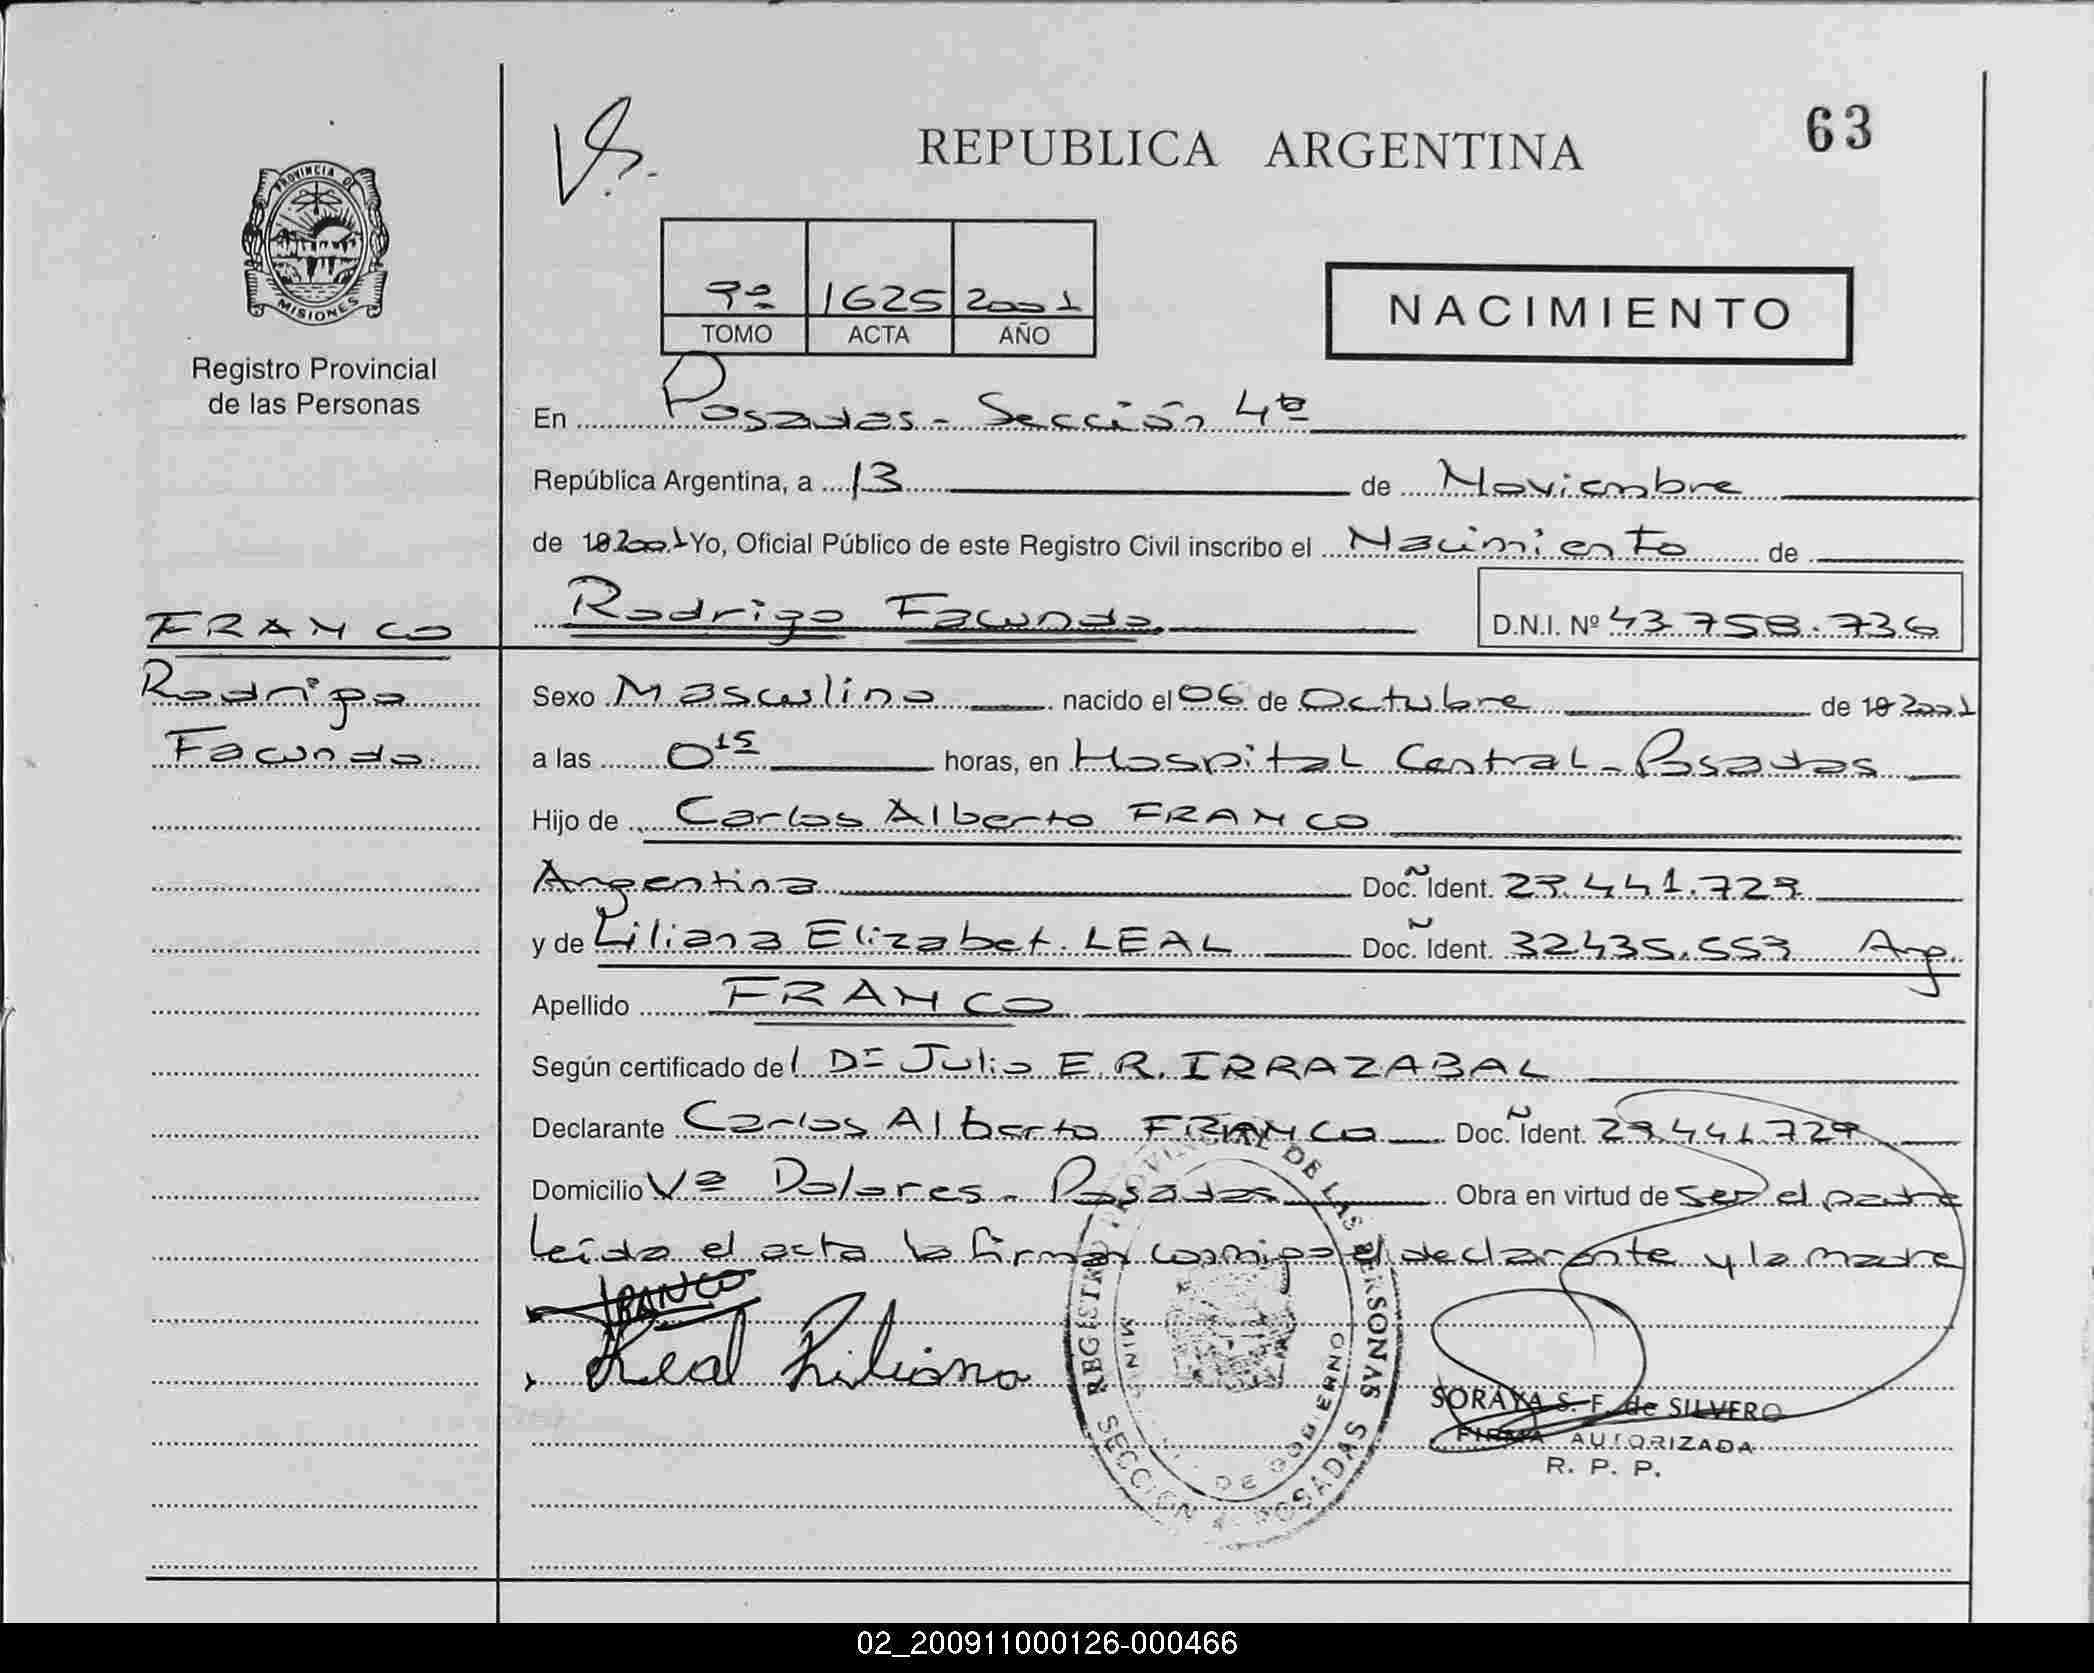 63
REPUBLICA ARGENTINA
PROVINCIA DE
MISIONES
Registro Provincial
de las Personas
1625 2001
TOMO ACTA AÑO
NACIMIENTO
En Posadas - Sección 4ª
República Argentina, a 13 de Noviembre
de 19 2001 Yo, Oficial Público de este Registro Civil inscribo el Nacimiento de
Rodrigo Facundo D.N.I. Nº 43.758.736
FRANCO
Rodrigo
Facundo
Sexo Masculino nacido el 06 de Octubre de 19 2001
a las 0 15 horas, en Hospital Central - Posadas
Hijo de Carlos Alberto FRANCO
Argentina Doc. Ident. 29.441.729
y de Liliana Elizabet LEAL Doc. Ident. 32435.559 Arg.
Apellido FRANCO
Según certificado del Dr Julio E. R. IRRAZABAL
Declarante Carlos Alberto FRANCO Doc. Ident. 29.441.729
Domicilio Vª Dolores - Posadas Obra en virtud de ser el padre
Leída el acta la firman conmigo el declarante y la madre
FRANCO
Leal Liliana
REGISTRO PROVINCIAL DE LAS PERSONAS
DE GOBIERNO
SECCION 4 POSADAS
SORAYA S. F. de SILVERO
FIRMA AUTORIZADA
R. P. P.
02_200911000126-000466